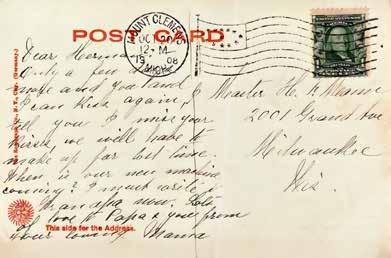 POST CARD
MOUNT CLEMENS
OCT 20
12-M
1908
MICH.
Dear Herman
Only a few
more and you and
I can kiss again,
tell you I miss your
kisses, we will have to
make up for lost time.
When is our new machine
coming? I must write
Grandpa now. Lots
of love to Papa & you from
your loving Mama
Master H.
2001 Grand Ave
Milwaukee
Wis.
This side for the Address.